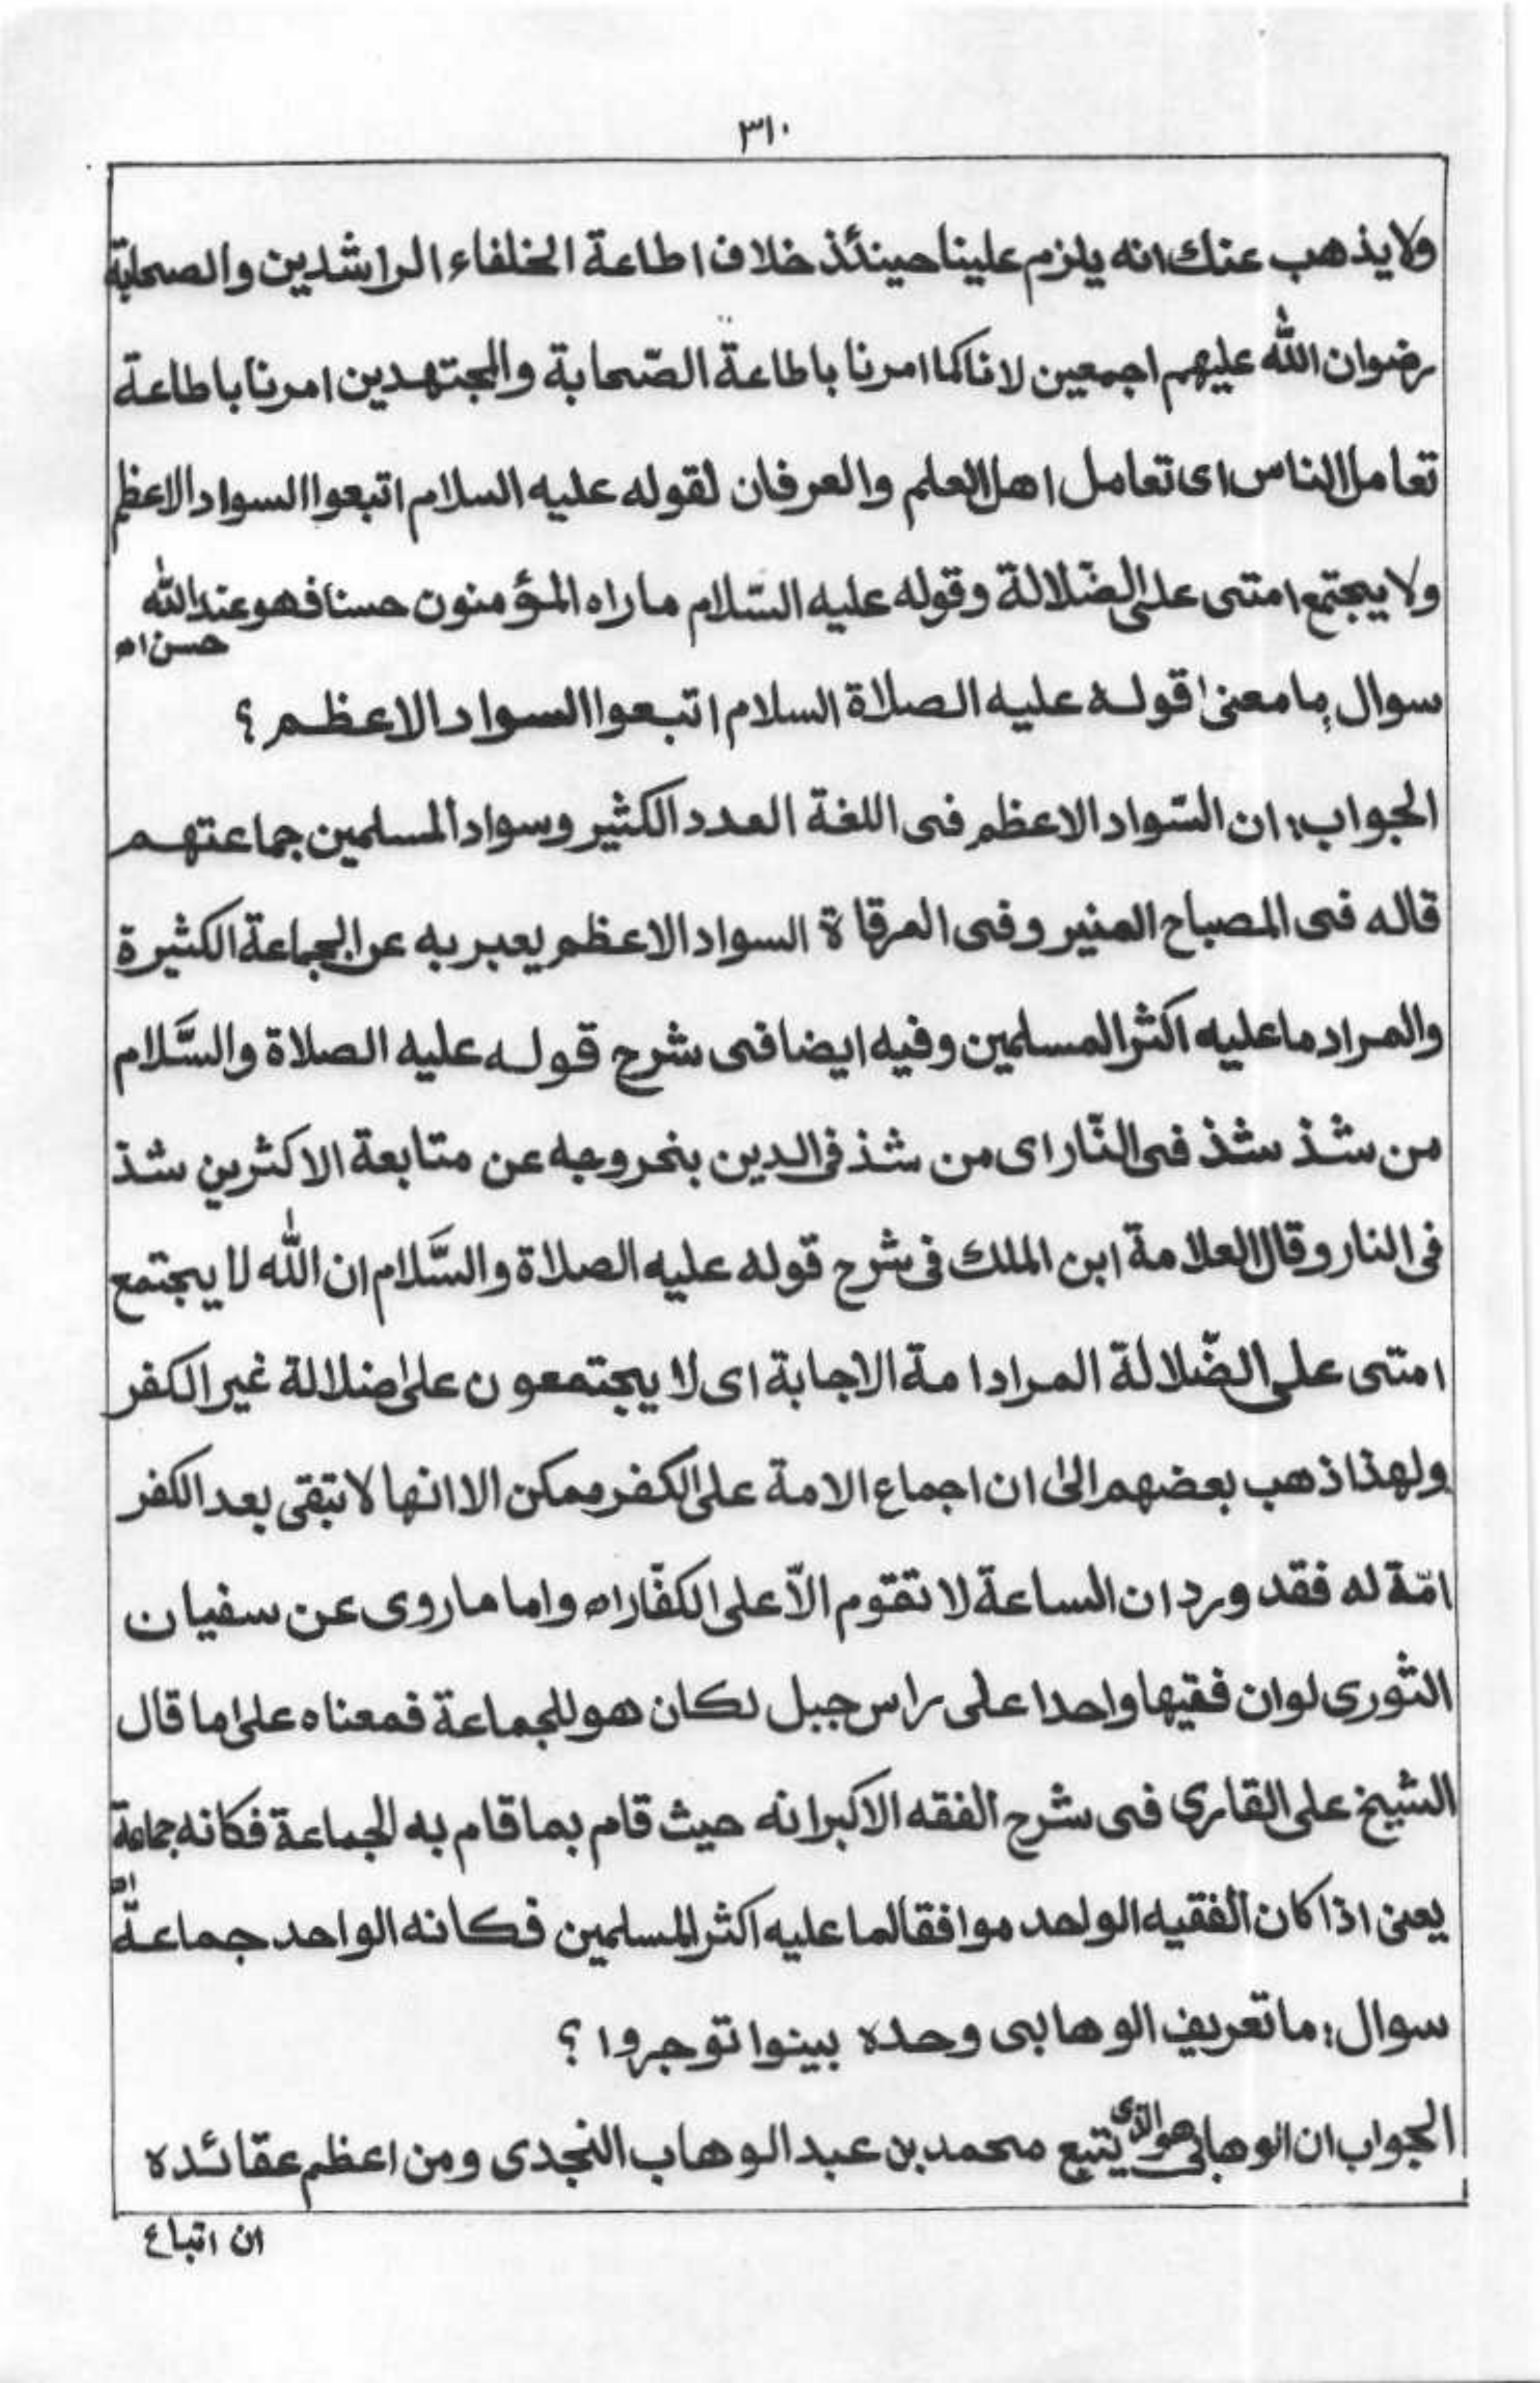 ٣١٠
ولا يذهب عنك انه يلزم علينا حينئذ خلاف اطاعة الخلفاء الراشدين والصحابة
رضوان الله عليهم اجمعين لانا كما امرنا باطاعة الصّحابة والمجتهدين امرنا باطاعة
تعامل الناس اى تعامل اهل العلم والعرفان لقوله عليه السلام اتبعوا السواد الاعظم
ولا يجتمع امتى على الضّلالة وقوله عليه السّلام ماراه المؤمنون حسنا فهو عند الله
حسن اه
سوال: ما معنى قوله عليه الصلاة السلام اتبعوا السواد الاعظم ؟
الجواب: ان السّواد الاعظم فى اللغة العدد الكثير وسواد المسلمين جماعتهم
قاله فى المصباح المنير وفى المرقاة السواد الاعظم يعبر به عن الجماعة الكثيرة
والمراد ما عليه اكثر المسلمين وفيه ايضا فى شرح قوله عليه الصلاة والسَّلام
من شذ شذ فى النّار اى من شذ فى الدين بخروجه عن متابعة الاكثرين شذ
فى النار وقال العلامة ابن الملك فى شرح قوله عليه الصلاة والسَّلام ان الله لا يجتمع
امتى على الضّلالة المراد امة الاجابة اى لا يجتمعون على ضلالة غير الكفر
ولهذا ذهب بعضهم الى ان اجماع الامة على الكفر ممكن الا انها لا تبقى بعد الكفر
امّة له فقد ورد ان الساعة لا تقوم الاّ على الكفّار اه واما ما روى عن سفيان
الثورى لو ان فقيها واحدا على راس جبل لكان هو للجماعة فمعناه على ما قال
الشيخ على القارى فى شرح الفقه الاكبر انه حيث قام بما قام به الجماعة فكانه جماعة
اه
يعنى اذا كان الفقيه الواحد موافقا لما عليه اكثر المسلمين فكانه الواحد جماعةٌ
سوال: ما تعريف الوهابى وحده بينوا توجروا ؟
الجواب ان الوهابى هو الذى يتبع محمد بن عبد الوهاب النجدى ومن اعظم عقائده
ان اتباع